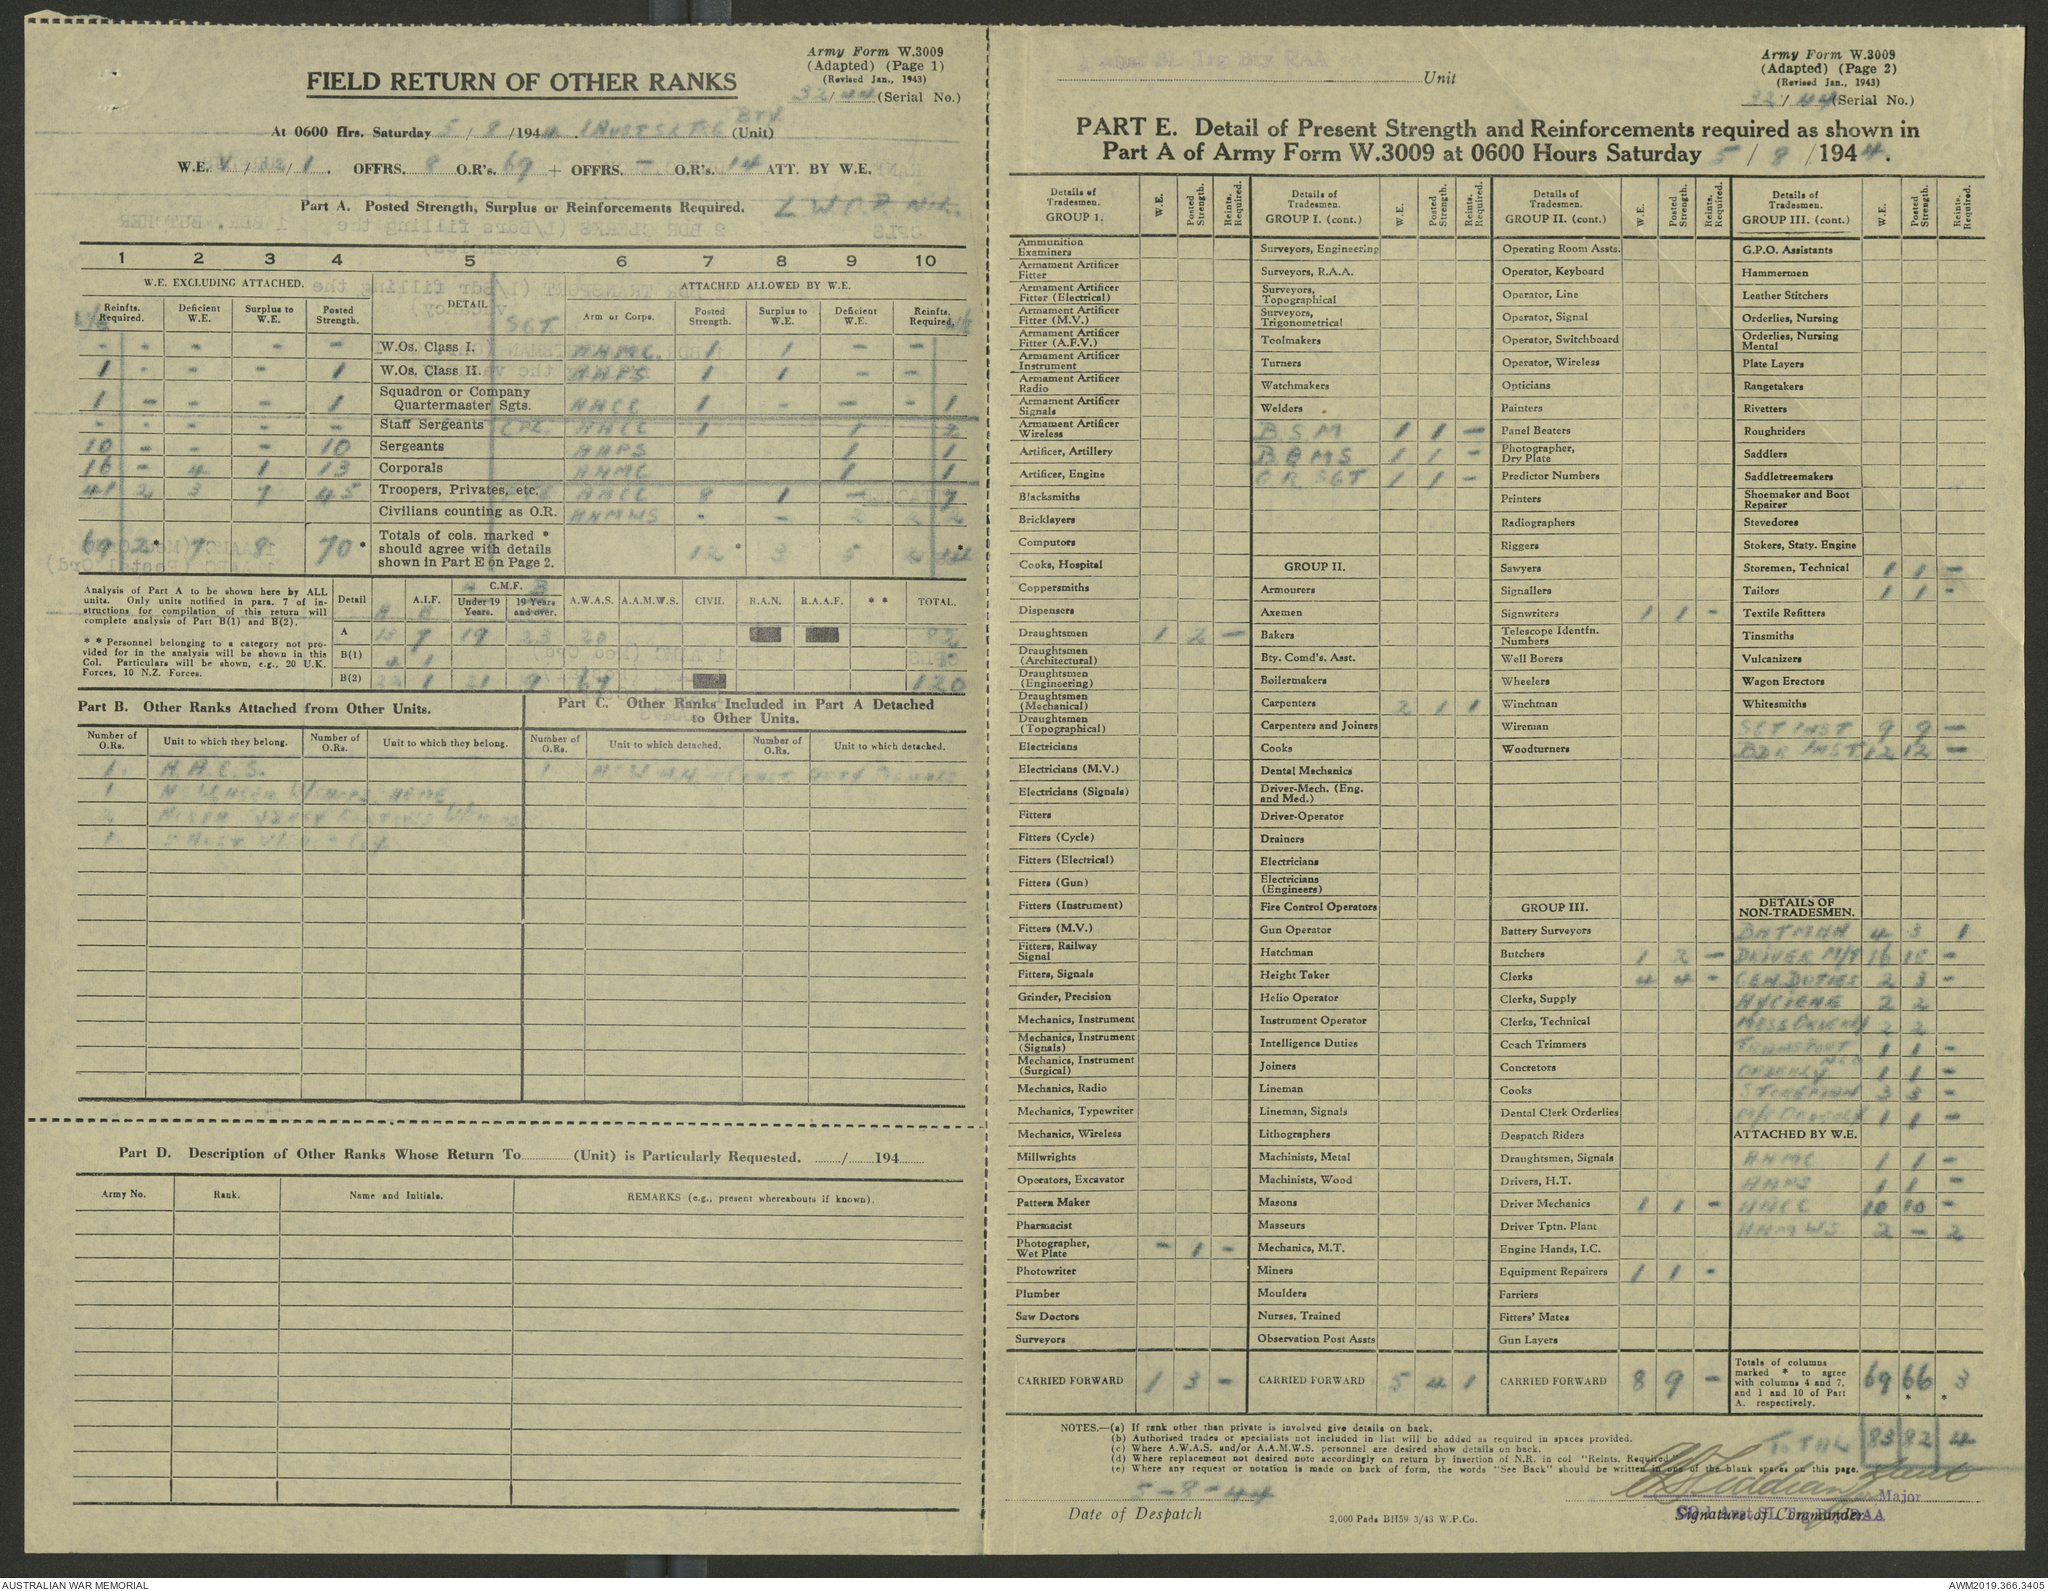 Army Form W.3009
(Adapted) (Page 1)
(Revised Jan., 1943)
32/44 (Serial No.)
FIELD RETURN OF OTHER RANKS
At 0600 Hrs. Saturday 5/8/1944. 1 Aust S L T G BTY (Unit)
W.E. V/32/1. OFFRS. 8 O.R's. 69 + OFFRS. - O.R's. 14 ATT. BY W.E.
Part A. Posted Strength, Surplus or Reinforcements Required.
1 2 3 4 5 6 7 8 9 10
W.E. EXCLUDING ATTACHED. DETAIL ATTACHED ALLOWED BY W.E.
Reinfts. Required. Deficient W.E. Surplus to W.E. Posted Strength. SGT Arm or Corps. Posted Strength. Surplus to W.E. Deficient W.E. Reinfts. Required.
- - - - W.Os. Class I. AAMC. 1 1 - -
1 - - 1 W.Os. Class II. AAPS 1 1 - -
1 - - 1 Squadron or Company Quartermaster Sgts. AACC 1 - - 1
- - - - Staff Sergeants CPL. AACC 1 1
10 - - 10 Sergeants AAPS 1 1
16 - 4 1 13 Corporals AAMC 1 1
41 2 3 7 45 Troopers, Privates, etc. AACC 8 1 - 7
Civilians counting as O.R. AAMWS - - 2 2
69 2* 7 8 70* Totals of cols. marked * should agree with details shown in Part E on Page 2. 12* 3 5 *
Analysis of Part A to be shown here by ALL units. Only units notified in para. 7 of instructions for compilation of this return will complete analysis of Part B(1) and B(2).
* * Personnel belonging to a category not provided for in the analysis will be shown in this Col. Particulars will be shown, e.g., 20 U.K. Forces, 10 N.Z. Forces.
Detail A.I.F. C.M.F. Under 19 Years. 19 Years and over. A.W.A.S. A.A.M.W.S. CIVIL R.A.N. R.A.A.F. * * TOTAL.
A 13 7 19 23 20 82
B(1) 4 1
B(2) 1 21 9 67 120
Part B. Other Ranks Attached from Other Units.
Part C. Other Ranks Included in Part A Detached to Other Units.
Number of O.Rs. Unit to which they belong. Number of O.Rs. Unit to which they belong. Number of O.Rs. Unit to which detached. Number of O.Rs. Unit to which detached.
1. A.A.E.S. 1
1
2
1
Part D. Description of Other Ranks Whose Return To (Unit) is Particularly Requested. / 194
Army No. Rank. Name and Initials. REMARKS (e.g., present whereabouts if known).
1 Aust SL Trg Bty RAA Unit
Army Form W.3009
(Adapted) (Page 2)
(Revised Jan., 1943)
32/44 (Serial No.)
PART E. Detail of Present Strength and Reinforcements required as shown in
Part A of Army Form W.3009 at 0600 Hours Saturday 5/8/1944.
Details of Tradesmen. GROUP 1. W.E. Posted Strength. Reints. Required.
Ammunition Examiners
Armament Artificer Fitter
Armament Artificer Fitter (Electrical)
Armament Artificer Fitter (M.V.)
Armament Artificer Fitter (A.F.V.)
Armament Artificer Instrument
Armament Artificer Radio
Armament Artificer Signals
Armament Artificer Wireless
Artificer, Artillery
Artificer, Engine
Blacksmiths
Bricklayers
Computors
Cooks, Hospital
Coppersmiths
Dispensers
Draughtsmen 1 2 -
Draughtsmen (Architectural)
Draughtsmen (Engineering)
Draughtsmen (Mechanical)
Draughtsmen (Topographical)
Electricians
Electricians (M.V.)
Electricians (Signals)
Fitters
Fitters (Cycle)
Fitters (Electrical)
Fitters (Gun)
Fitters (Instrument)
Fitters (M.V.)
Fitters, Railway Signal
Fitters, Signals
Grinder, Precision
Mechanics, Instrument
Mechanics, Instrument (Signals)
Mechanics, Instrument (Surgical)
Mechanics, Radio
Mechanics, Typewriter
Mechanics, Wireless
Millwrights
Operators, Excavator
Pattern Maker
Pharmacist
Photographer, Wet Plate - 1 -
Photowriter
Plumber
Saw Doctors
Surveyors
CARRIED FORWARD 1 3 -
Details of Tradesmen. GROUP I. (cont.) W.E. Posted Strength. Reints. Required.
Surveyors, Engineering
Surveyors, R.A.A.
Surveyors, Topographical
Surveyors, Trigonometrical
Toolmakers
Turners
Watchmakers
Welders
B.S.M 1 1 -
B.Q.M.S 1 1 -
O.R. SGT 1 1 -
GROUP II.
Armourers
Axemen
Bakers
Bty. Comd's. Asst.
Boilermakers
Carpenters 2 1 1
Carpenters and Joiners
Cooks
Dental Mechanics
Driver-Mech. (Eng. and Med.)
Driver-Operator
Drainers
Electricians
Electricians (Engineers)
Fire Control Operators
Gun Operator
Hatchman
Height Taker
Helio Operator
Instrument Operator
Intelligence Duties
Joiners
Lineman
Lineman, Signals
Lithographers
Machinists, Metal
Machinists, Wood
Masons
Masseurs
Mechanics, M.T.
Miners
Moulders
Nurses, Trained
Observation Post Assts
CARRIED FORWARD 5 4 1
Details of Tradesmen. GROUP II. (cont.) W.E. Posted Strength. Reints. Required.
Operating Room Assts.
Operator, Keyboard
Operator, Line
Operator, Signal
Operator, Switchboard
Operator, Wireless
Opticians
Painters
Panel Beaters
Photographer, Dry Plate
Predictor Numbers
Printers
Radiographers
Riggers
Sawyers
Signallers
Signwriters 1 1 -
Telescope Identfn. Numbers
Well Borers
Wheelers
Winchman
Wireman
Woodturners
GROUP III.
Battery Surveyors
Butchers 1 2 -
Clerks 4 4 -
Clerks, Supply
Clerks, Technical
Coach Trimmers
Concretors
Cooks
Dental Clerk Orderlies
Despatch Riders
Draughtsmen, Signals
Drivers, H.T.
Driver Mechanics 1 1 -
Driver Tptn. Plant
Engine Hands, I.C.
Equipment Repairers 1 1 -
Farriers
Fitters' Mates
Gun Layers
CARRIED FORWARD 8 9 -
Details of Tradesmen. GROUP III. (cont.) W.E. Posted Strength. Reints. Required.
G.P.O. Assistants
Hammermen
Leather Stitchers
Orderlies, Nursing
Orderlies, Nursing Mental
Plate Layers
Rangetakers
Rivetters
Roughriders
Saddlers
Saddletreemakers
Shoemaker and Boot Repairer
Stevedores
Stokers, Staty. Engine
Storemen, Technical 1 1 -
Tailors 1 1 -
Textile Refitters
Tinsmiths
Vulcanizers
Wagon Erectors
Whitesmiths
SGT INST 9 9 -
BDR INST 12 12 -
DETAILS OF NON-TRADESMEN.
BATMAN 4 3 1
DRIVER M/T 16 15 -
GEN DUTIES 2 3 -
HYGIENE 2 2
MESS ORDERLY 2 2
TRANSPORT NCO 1 1 -
ORDERLY 1 1 -
STOREMAN 3 3 -
M/C ORDERLY 1 1 -
ATTACHED BY W.E.
AAMC 1 1 -
AAPS 1 1 -
AACC 10 10 -
AAMWS 2 - 2
Totals of columns marked * to agree with columns 4 and 7, and 1 and 10 of Part A. respectively. 69 66* 3*
TOTAL 83 82 4
NOTES.—(a) If rank other than private is involved give details on back.
(b) Authorised trades or specialists not included in list will be added as required in spaces provided.
(c) Where A.W.A.S. and/or A.A.M.W.S. personnel are desired show details on back.
(d) Where replacement not desired note accordingly on return by insertion of N.R. in col "Reints. Required."
(e) Where any request or notation is made on back of form, the words "See Back" should be written in one of the blank spaces on this page.
5-8-44
Date of Despatch
2,000 Pads BH59 3/43 W.P.Co.
Major
CO 1 Aust SL Trg Bty RAA
Signature of Commander
AUSTRALIAN WAR MEMORIAL
AWM2019.366.3405